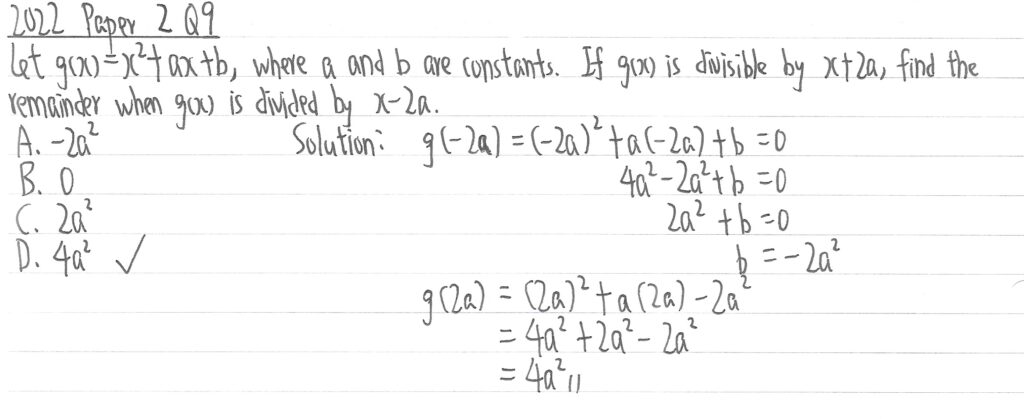 2022 Paper 2 Q9
Let g(x)=x²+ax+b, where a and b are constants. If g(x) is divisible by x+2a, find the
remainder when g(x) is divided by x-2a.
A. -2a²
B. 0
C. 2a²
D. 4a² ✓
Solution: g(-2a) = (-2a)²+a(-2a)+b = 0
4a²-2a²+b = 0
2a²+b = 0
b = -2a²
g(2a) = (2a)²+a(2a)-2a²
= 4a²+2a²-2a²
= 4a² //